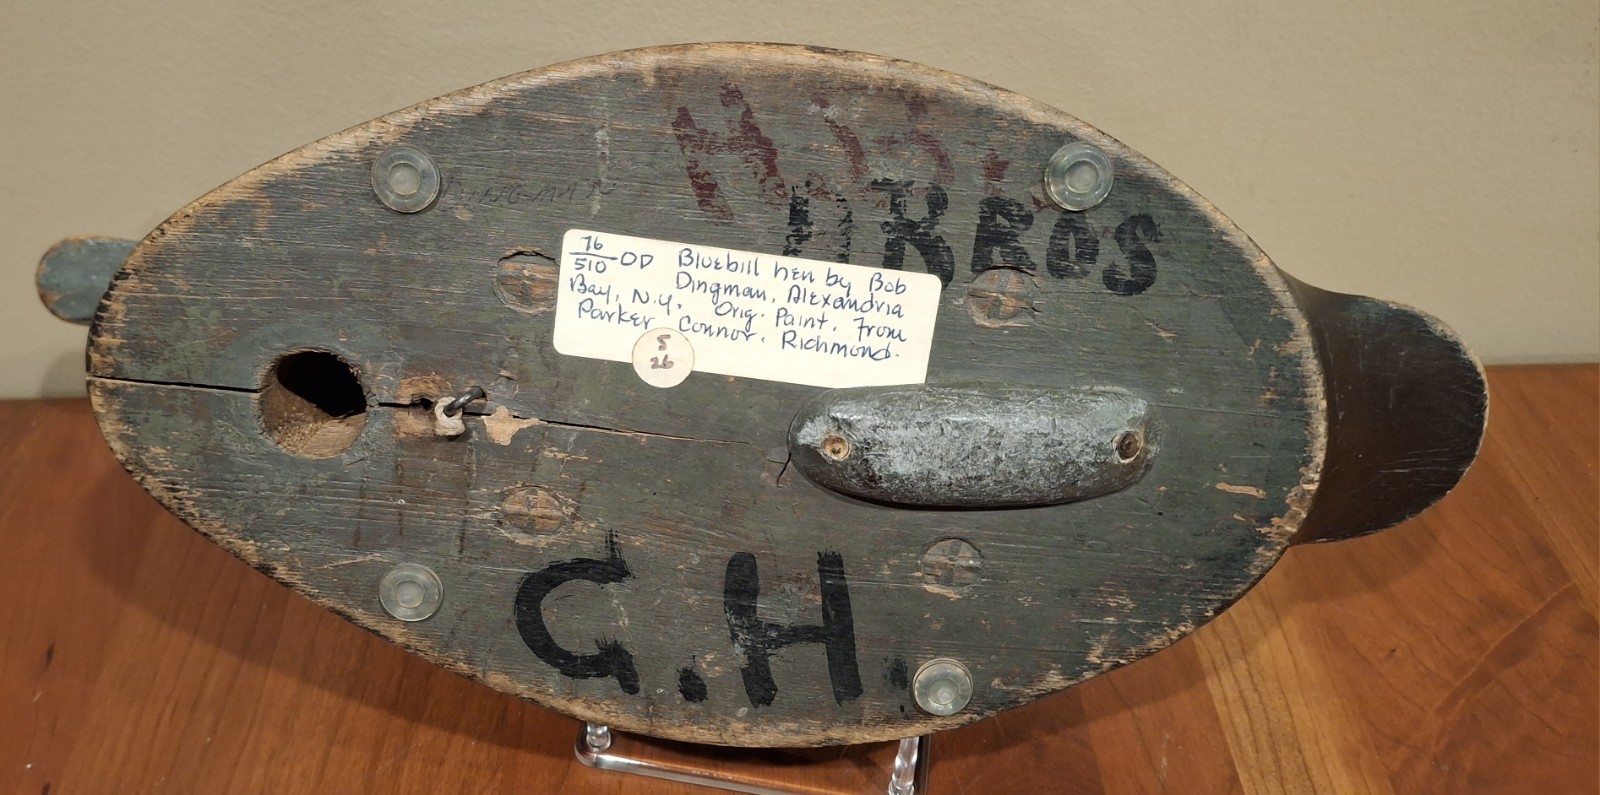 H.B.
H BROS
76
510 OD Bluebill hen by Bob
Dingman, Alexandria
Bay, N.Y. Orig. Paint. From
Parker Connor. Richmond.
5
26
G.H.